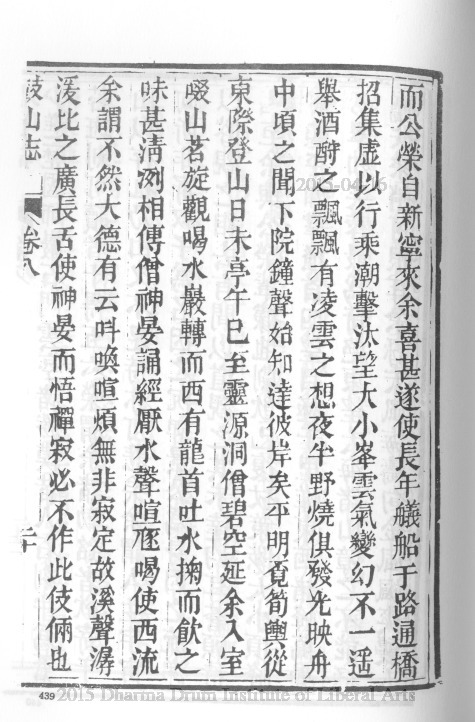 而公榮自新寧來余喜甚遂使長年艤船于路通橋
招集虛以行乘潮擊汰望大小峯雲氣變幻不一遥
舉酒酹之飄飄有凌雲之想夜半野燒俱發光映舟
中頃之聞下院鐘聲始知達彼岸矣平明覓筍輿從
東際登山日未亭午巳至靈源洞僧碧空延余入室
啜山茗旋觀喝水巖轉而西有龍首吐水掬而飲之
味甚清冽相傳僧神晏誦經厭水聲喧逐喝使西流
余謂不然大德有云呌喚喧煩無非寂定故溪聲潺
湲比之廣長舌使神晏而悟禪寂必不作此伎倆也
鼓山志 卷八 二十
2015-04-16
439 2015 Dharma Drum Institute of Liberal Arts